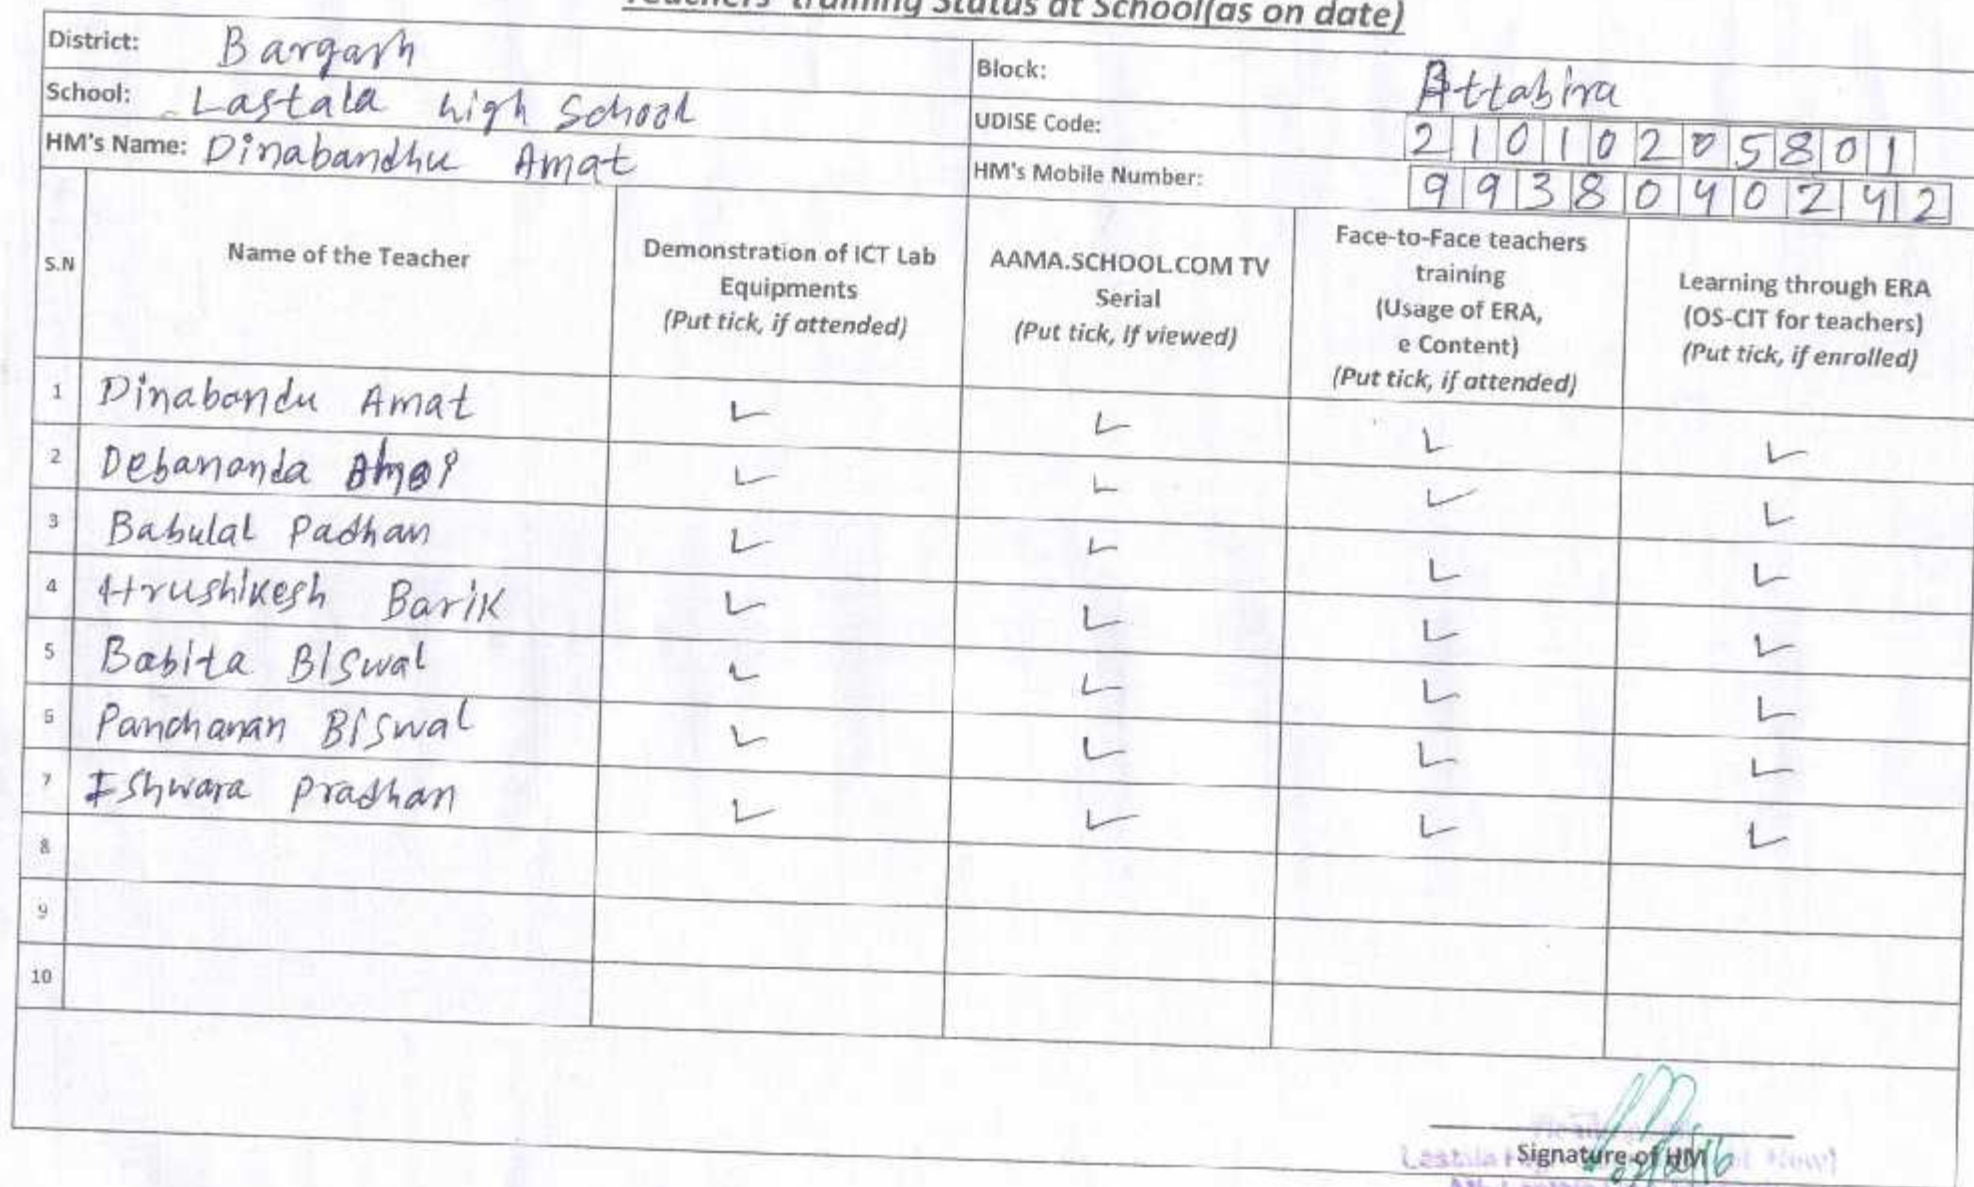 Teachers' training Status at School(as on date)
District: Bargarh
Block: Attabira
School: Lastala high School
UDISE Code: 21010205801
HM's Name: Dinabandhu Amat
HM's Mobile Number: 9938040242
S.N
Name of the Teacher
Demonstration of ICT Lab
Equipments
(Put tick, if attended)
AAMA.SCHOOL.COM TV
Serial
(Put tick, If viewed)
Face-to-Face teachers
training
(Usage of ERA,
e Content)
(Put tick, if attended)
Learning through ERA
(OS-CIT for teachers)
(Put tick, if enrolled)
1 Dinabandu Amat ✓ ✓ ✓ ✓
2 Debananda ✓ ✓ ✓ ✓
3 Babulal Padhan ✓ ✓ ✓ ✓
4 Hrushikesh Barik ✓ ✓ ✓ ✓
5 Babita Biswal ✓ ✓ ✓ ✓
6 Panchanan Biswal ✓ ✓ ✓ ✓
7 Ishwara Pradhan ✓ ✓ ✓ ✓
8
9
10
Signature of HM